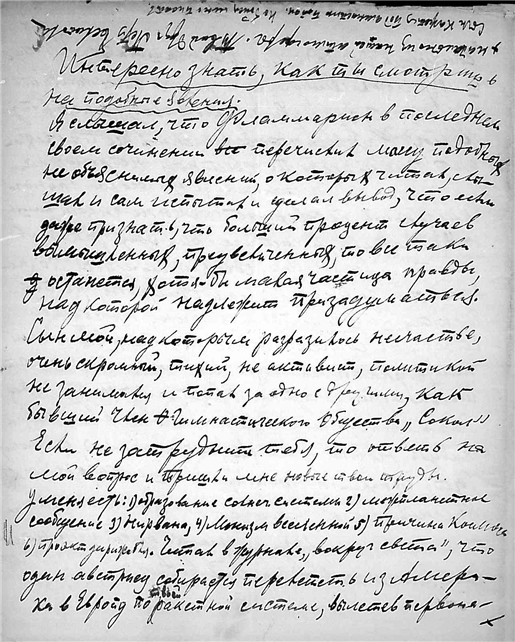 Интересно знать, как ты смотришь
на подобные явления.
Я слышал, что Фламмарион в последнем
своем сочинении перечислил массу подобных
не объяснимых явлений, о которых читал, слы-
шал и сам испытал и сделал вывод, что если
даже признать, что больший процент случаев
вымышленных, преувеличенных, то все таки
останется хотя-бы малая частица правды,
над которой надлежит призадуматься.
Сын мой, над которым разразилось несчастье,
очень скромный, тихий, не активист, политикой
не занимался и попал за одно с другими, как
бывший член Гимнастического Общества „Сокол"
Если не затруднит тебя, то ответь на
мой вопрос и пришли мне новые твои труды.
У меня есть: 1) образование солнеч системы 2) межпланетное
сообщение 3) Нирвана, 4) Монизм вселенной 5) Причина Космоса
6) проект дирижабл. Читал в журнале „вокруг света", что
один австриец собирается перелететь из Амери-
ки в Европу по твоей ракетной системе, вылетев первона-